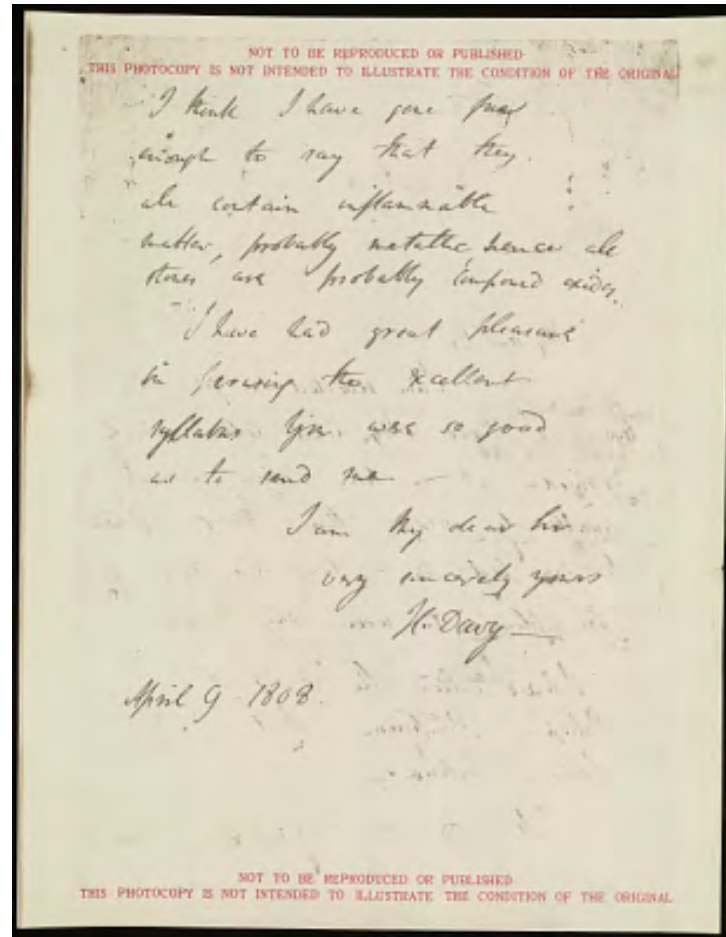 NOT TO BE REPRODUCED OR PUBLISHED
THIS PHOTOCOPY IS NOT INTENDED TO ILLUSTRATE THE CONDITION OF THE ORIGINAL
I think I have gone
enough to say that they
all contain inflammable
matter, probably metallic, hence all
stones are probably compound oxides.
I have had great pleasure
in perusing the excellent
syllabus you were so good
as to send me —
I am my dear Sir
very sincerely yours
H. Davy —
April 9 1808.
NOT TO BE REPRODUCED OR PUBLISHED
THIS PHOTOCOPY IS NOT INTENDED TO ILLUSTRATE THE CONDITION OF THE ORIGINAL